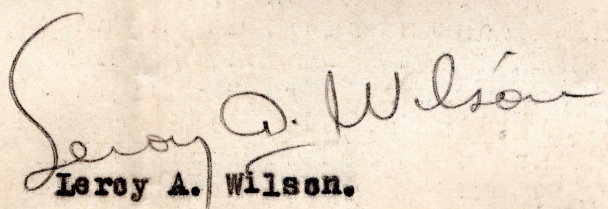 Leroy A. Wilson
Leroy A. Wilson.